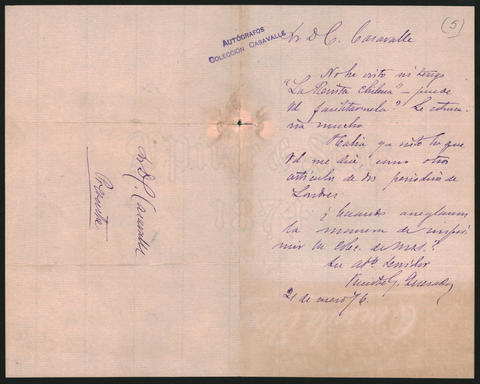 (5)
AUTÓGRAFOS
COLECCIÓN CASAVALLE
Sr D C. Casavalle
No he visto ni tengo
"La Revista Chilena" – puede
Vd facilitarmela? Le estima-
ria mucho
Habia ya visto lo que
Vd me dice, como otros
artículos de dos periodicos de
Londres.
¿Cuando arreglamos
la manera de impri-
mir la de mas?
Su atto servidor
Vicente G. Quesada
21 de enero 76.
Sr D C. Casavalle
Presente